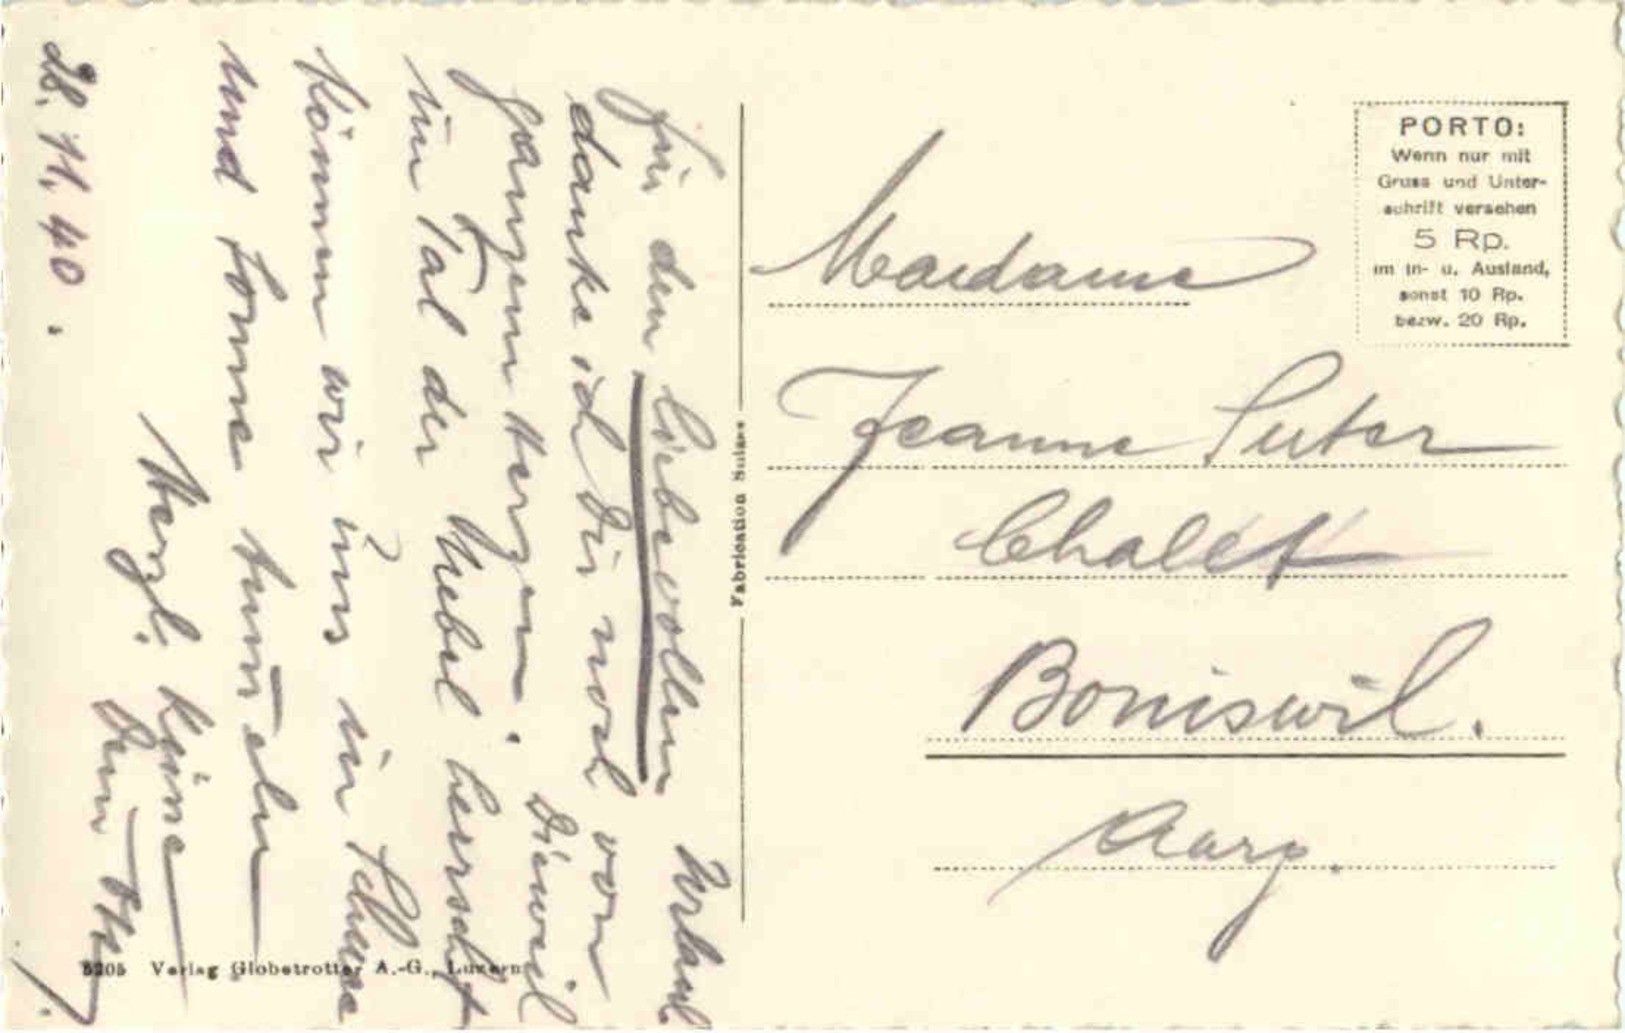 Für den liebevollen Urlaub
danke ich Dir noch von
ganzem Herzen. Dieweil
im Tal der Nebel herrscht
können wir uns in Schnee
und Sonne tummeln
Herzl. Küsse
Dein Otto
28. 11. 40.
Fabrication Suisse
5205 Verlag Globetrotter A.-G., Luzern
PORTO:
Wenn nur mit
Gruss und Unter-
schrift versehen
5 Rp.
im In- u. Ausland,
sonst 10 Rp.
bezw. 20 Rp.
Madame
Jeanne Suter
Chalet
Boniswil.
Aarg.